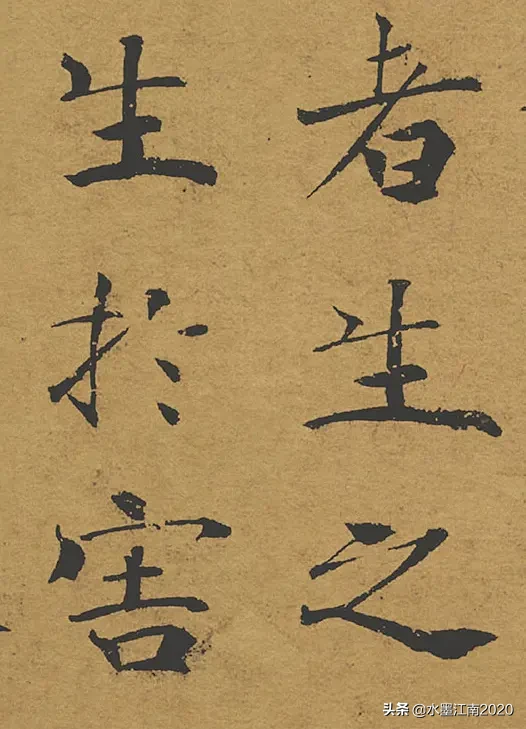 者生之
生於害
头条 @水墨江南2020